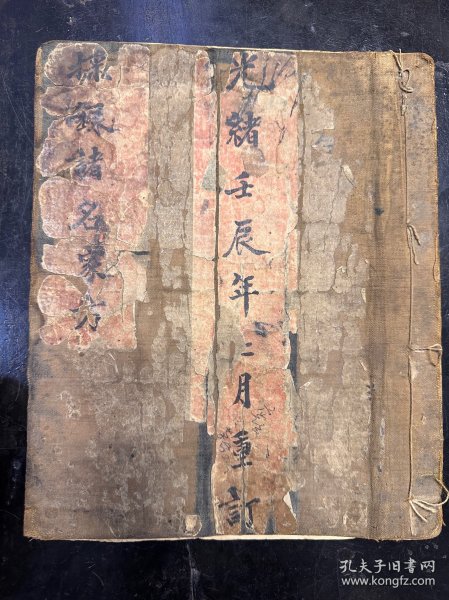 光緒壬辰年二月重訂
採銀諸名東方
孔夫子旧书网
www.kongfz.com